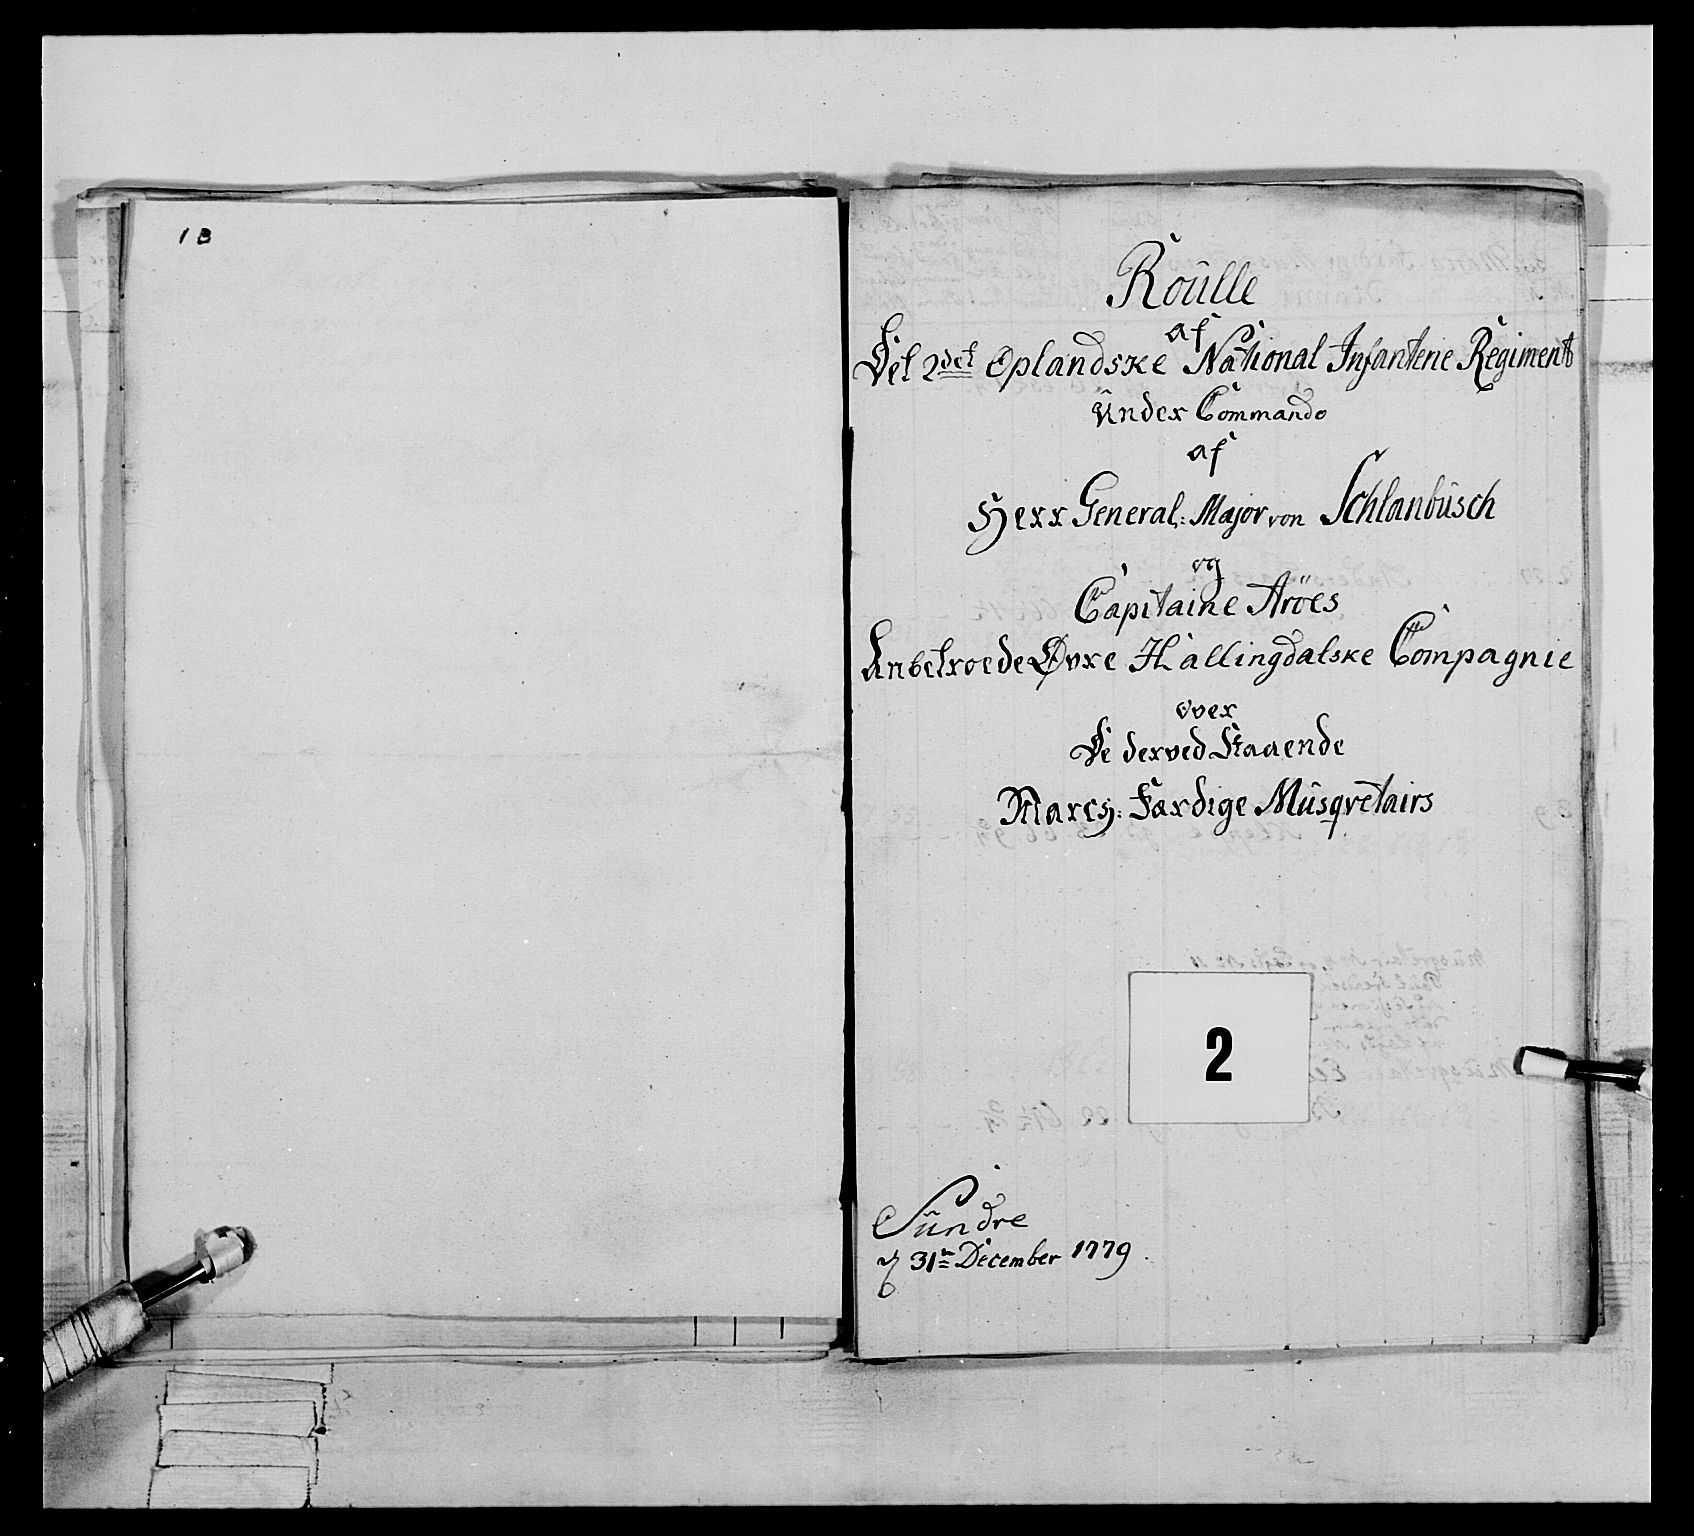 18
Roulle
af
Det 2det Oplandske National Infanterie Regiment
Under Commando
af
Herr General: Major von Schlanbusch
og
Capitaine Aröes
Anbetroede Øvre Hallingdalske Compagnie
over
De derved Staaende
March: Færdige Musqvetairs
2
Sundre
31te December 1779